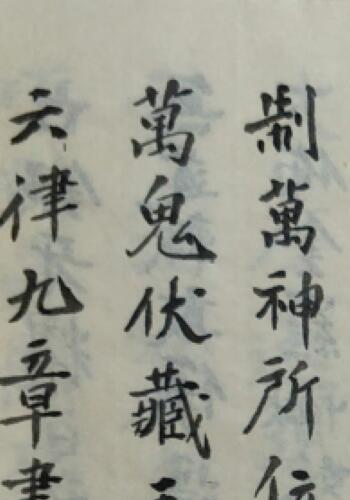 制萬神所
萬鬼伏藏
六律九章